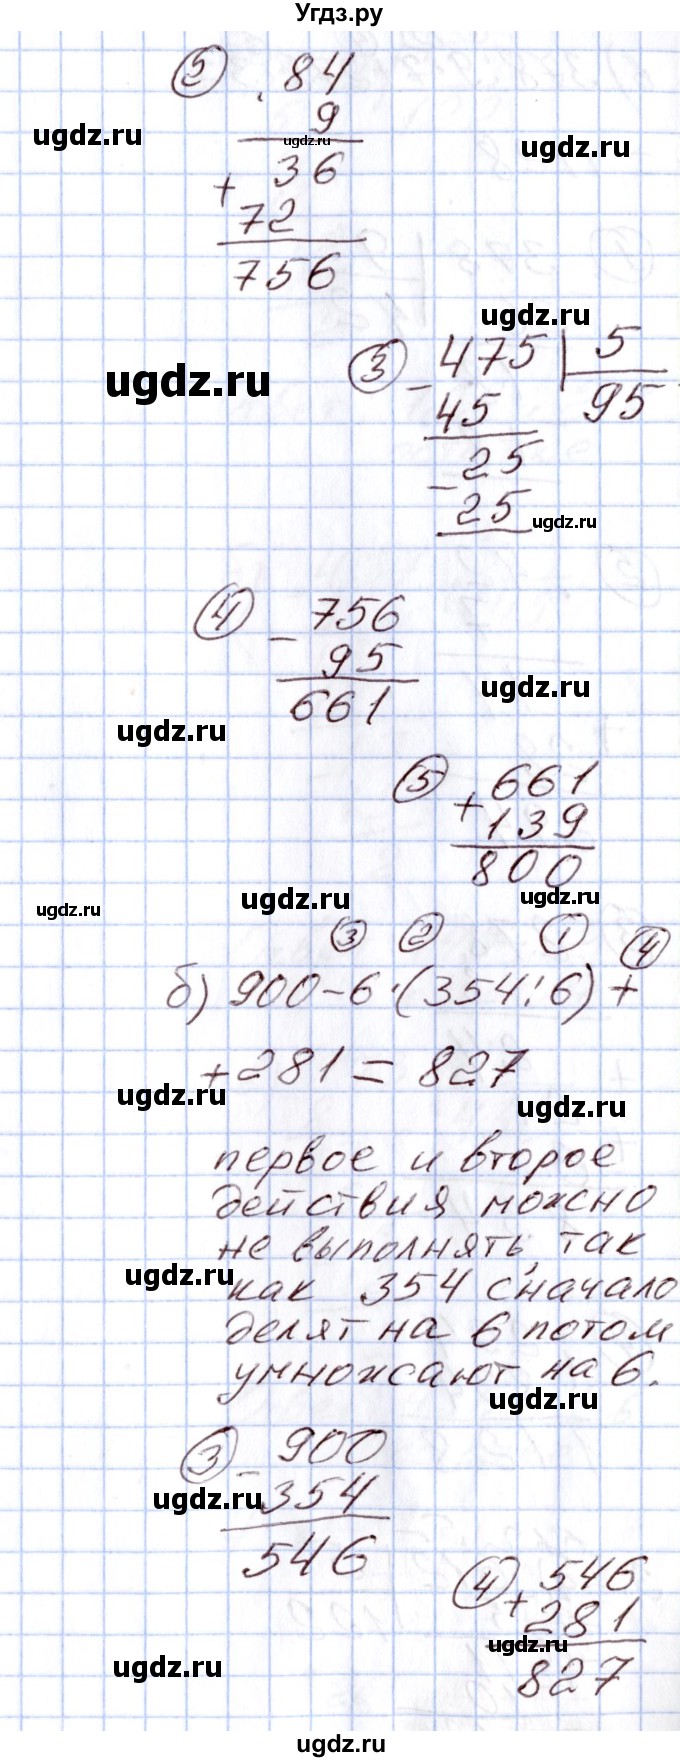 Угдз.ру
② 84
9
ugdz.ru
ugdz.ru
ugdz.ru
+ 36
72
756
ugdz.ru
③ - 475 | 5
ugdz.ru
45 95
- 25
25
ugdz.ru
④ - 756
95
ugdz.ru
661
ugdz.ru
⑤ + 661
139
800
ugdz.ru
ugdz.ru
ugdz.ru
③ ② ① ④
б) 900-6·(354:6)+
+281=827
ugdz.ru
ugdz.ru
первое и второе
действия можно
не выполнять, так
ugdz.ru
как 354 сначало
делят на 6 потом
умножают на 6.
ugdz.ru
③ - 900
ugdz.ru
354
546
④ + 546
281
ugdz.ru
827
ugdz.ru
ugdz.ru